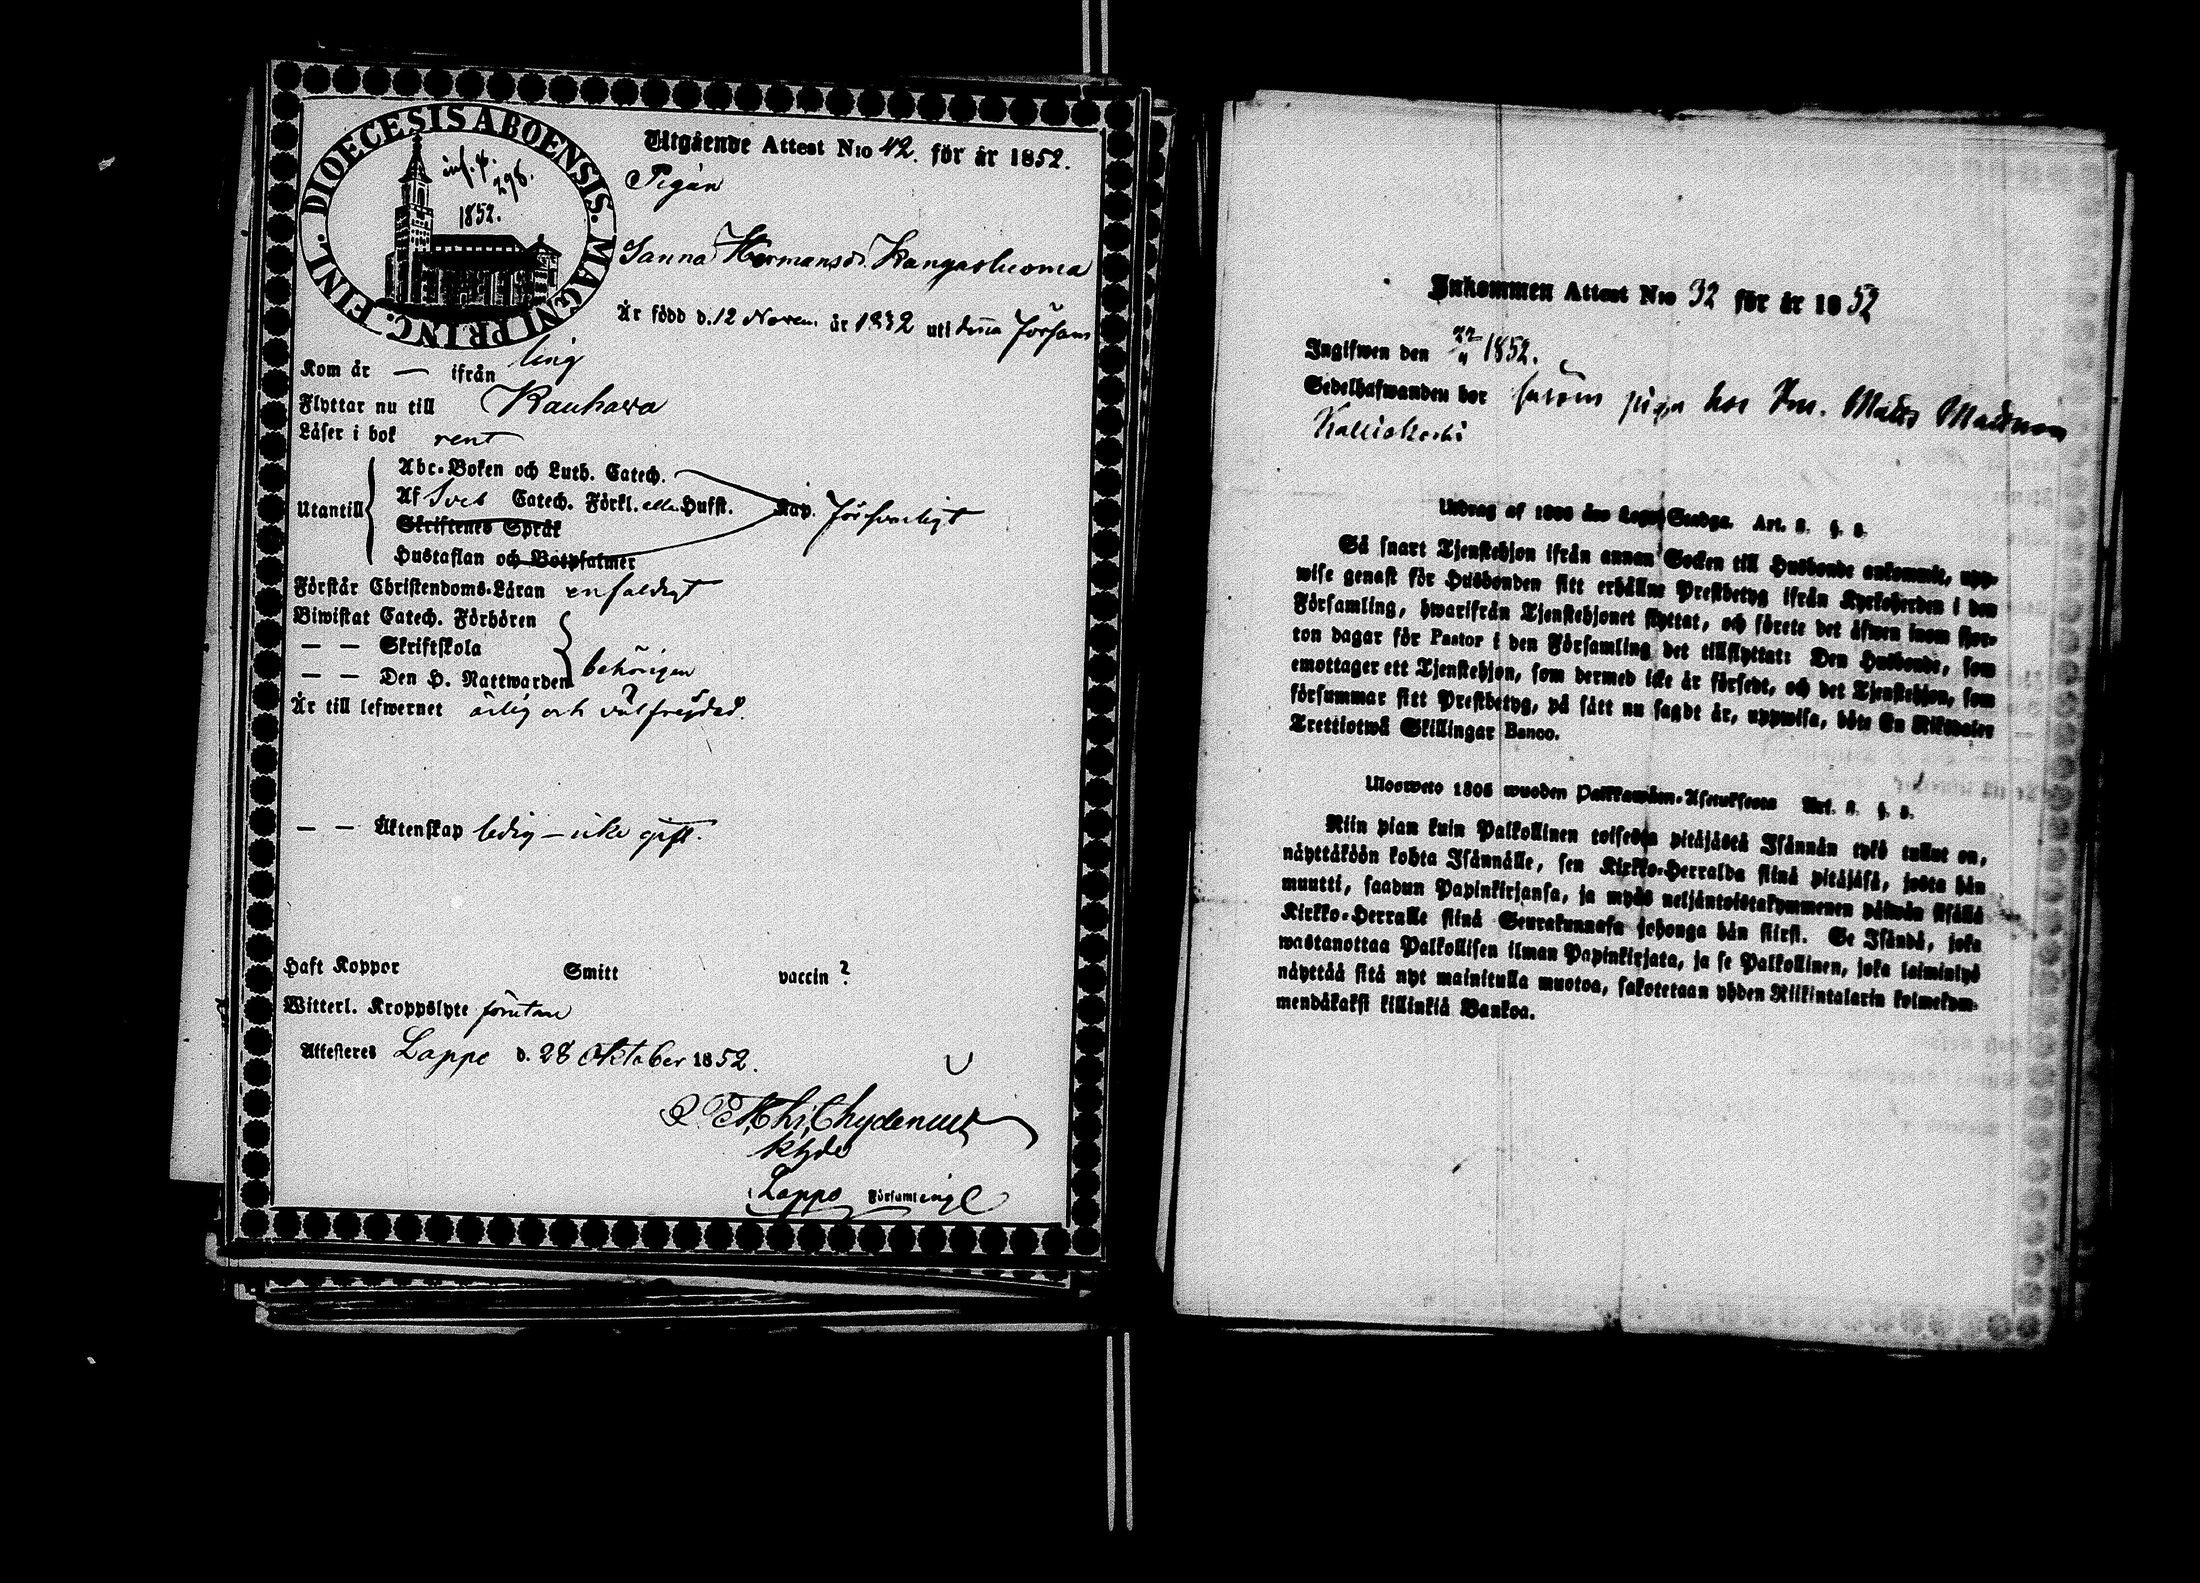 DIOECESIS ABOENSIS. MAGNI PRINC. FINL.
inf. p.
298.
1852.
Utgående Attest N:io 42. för år 1852.
Pigan
Sanna Hermansdr. Kangasluoma
Är född d. 12 Novem. år 1832 uti denna Försam
ling
Kom år — ifrån
Flyttar nu till Kauhava
Läser i bok rent
Utantill
Abc-Boken och Luth. Catech.
Af Sveb Catech. Förkl. eller Hufst. Kap. försvarligt
Skriftenes Språk
Hustaflan och Botpsalmer
Förstår Christendoms-Läran enfaldigt
Biwistat Catech. Förhören
— — Skriftskola
— — Den H. Nattwarden behörigen
Är till lefwernet ärlig och välfrejdad.
— — Äktenskap ledig — icke gift.
Haft Koppor Smitt vaccin ?
Witterl. Kroppslyte förutan
Attesteres Lappo d. 28 Oktober 1852.
Chydenius
Khde
Lappo Församling
Inkommen Attest N:io 32 för år 1852
Ingifwen den 22/11 1852.
Sedelhafwanden bor såsom piga hos Matts Mattsson
Kalliokoski
Utdrag af 1805 års Lego-Stadga. Art. §.
Så snart Tjenstehjon ifrån annan Socken till Husbonde ankommit, upp-
wise genast för Husbonden sitt erhållne Prestbetyg ifrån Kyrkoherden i den
Församling, hwarifrån Tjenstehjonet flyttat, och förete det äfwen inom fjor-
ton dagar för Pastor i den Församling det tillflyttat: Den Husbonde, som
emottager ett Tjenstehjon, som dermed icke är försedt, och det Tjenstehjon, som
försummar sitt Prestbetyg, på sätt nu sagdt är, uppwisa, böte En Riksdaler
Trettiotwå Skillingar Banco.
Ulosweto 1805 wuoden Palkkawäen-Asetuksesta Art. §.
Niin pian kuin Palkollinen toisesta pitäjästä Isännän tykö tullut on,
näyttäköön kohta Isännälle, sen Kirkko-Herralda siinä pitäjäsä, josta hän
muutti, saadun Papinkirjansa, ja myös neljäntoistakymmenen päiwän sisällä
Kirkko-Herralle siinä Seurakunnasa johonga hän siirsi. Se Isändä, joka
wastanottaa Palkollisen ilman Papinkirjata, ja se Palkollinen, joka laiminlyö
näyttää sitä nyt mainitulla muotoa, sakotetaan yhden Riikintalarin kolmekym-
mendäkaksi killinkiä Bankoa.